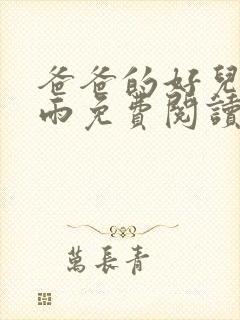 爸爸的好兒
雨免費閱讀
萬長青